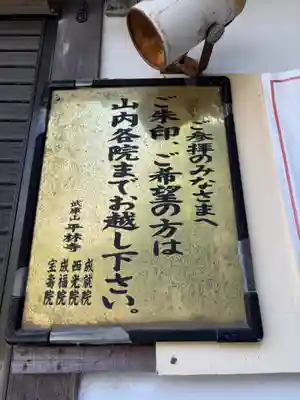 ご参拝のみなさまへ
ご朱印、ご希望の方は
山内各院までお越し下さい。
武庫山 平林寺
成就院
西光院
成福院
宝壽院